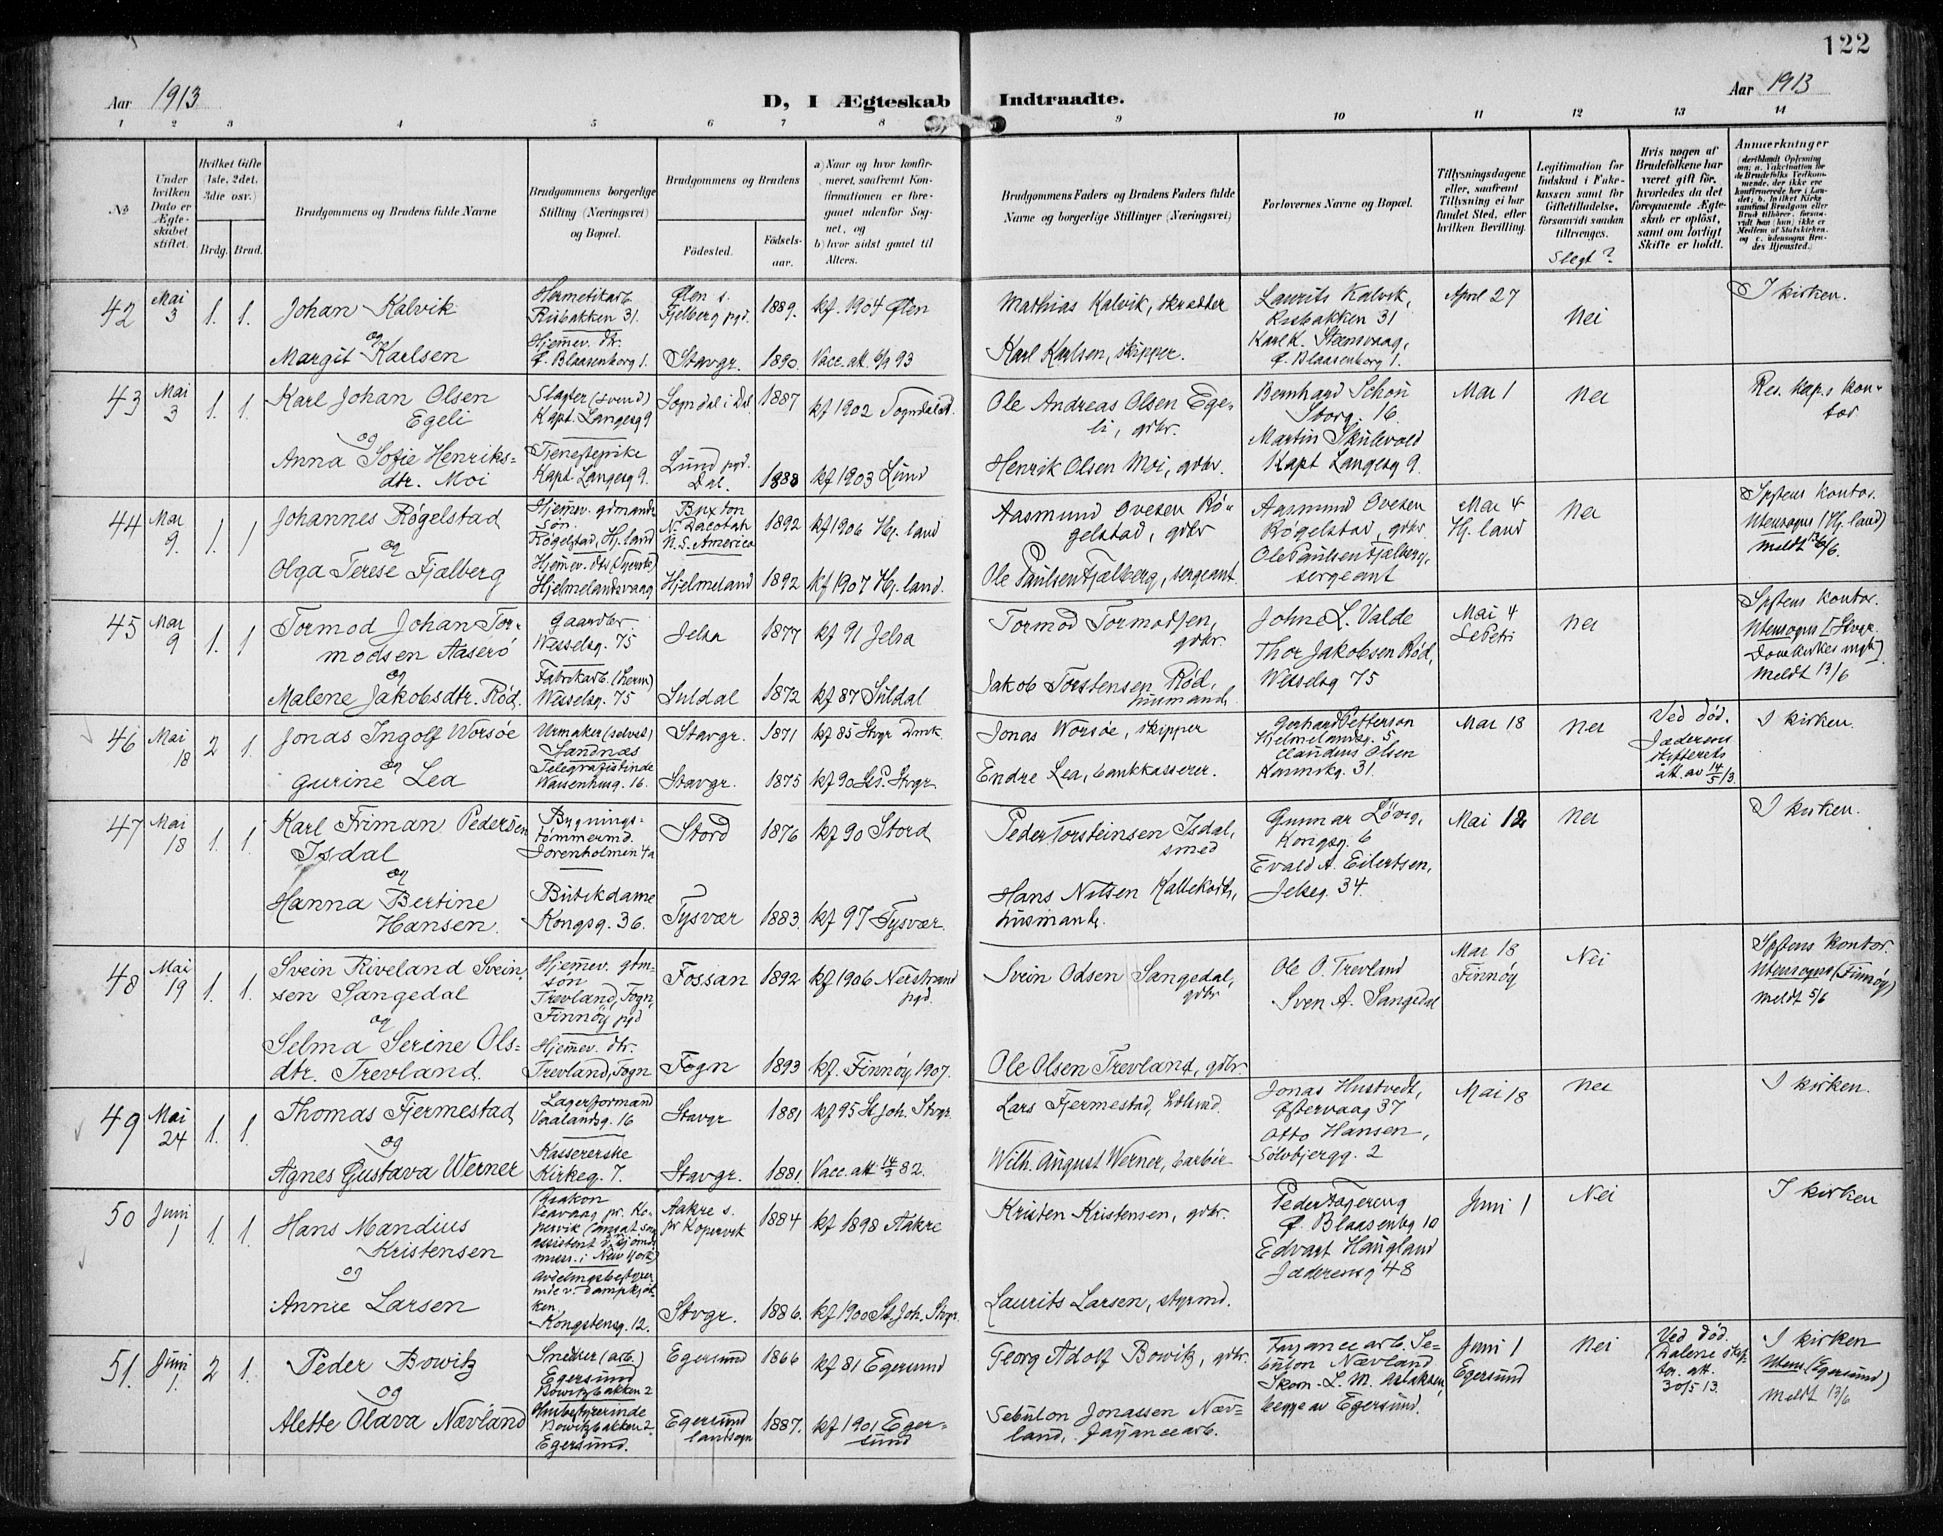 122
Aar 1913
D, I Ægteskab Indtraadte.
Aar 1913
1 2 3 4 5 6 7 8 9 10 11 12 13 14
No
Under hvilken Dato er Ægteskabet stiftet.
Hvilket Gifte (1ste, 2det, 3die osv.)
Brdg. Brud.
Brudgommens og Brudens fulde Navne
Brudgommens borgerlige Stilling (Næringsvei) og Bopæl.
Brudgommens og Brudens
Fødested.
Fødselsaar.
a) Naar og hvor konfirmeret, saafremt Konfirmationen er foregaaet udenfor Sognet, og
b) hvor sidst gaaet til Alters.
Brudgommens Faders og Brudens Faders fulde Navne og borgerlige Stillinger (Næringsvei)
Forlovernes Navne og Bopæl.
Tillysningsdagene eller, saafremt Tillysning ei har fundet Sted, efter hvilken Bevilling.
Legitimation for Indskud i Enkekassen samt for Giftetilladelse, forsaavidt saadan tiltrænges.
Slegt?
Hvis nogen af Brudefolkene har været gift før, hvorledes da det foregaaende Ægteskab er opløst, samt om lovligt Skifte er holdt.
Anmærkninger
42
Mai 3
1. 1.
Johan Kalvik
og
Margit Karlsen
Hermetikarb.
Risbakken 31.
Hjemmev. dtr.
Ø. Blaasenborg 1.
Ølen s.
Fjelberg pgd.
Stavgr.
1889.
1890.
kf. 1904 Ølen
Vacc. att. 6/9 93
Mathias Kalvik, skrædder
Karl Karlsen, skipper.
Laurits Kalvik,
Risbakken 31
Karl K. Steensvaag,
Ø. Blaasenborg 1.
April 27
Nei
I kirken.
43
Mai 3
1. 1.
Karl Johan Olsen
Egeli
og
Anna Sofie Henriks-
dtr. Moi
Slagter (svend)
Kapt. Langesg 9
Tjenestepike
Kapt. Langesg 9.
Sogndal i Dal.
Lund pgd.
Dal.
1887
1888
kf 1902 Sogndal
kf 1903 Lund
Ole Andreas Olsen Ege-
li, gdbr.
Henrik Olsen Moi, gdbr.
Bernhard Schøn
Storg. 16
Martin Skulevold
Kapt Langesg 9.
Mai 1
Nei
Res. kap.s kon-
tor
44
Mai 9.
1. 1
Johannes Røgelstad
og
Olga Terese Fjælberg
Hjemmev. gdmands
søn
Røgelstad, Hj. land
Hjelmelandsvaag
Buxton
N. Dacotah
N. S. America
Hjelmeland
1892
1892
kf 1906 Hj. land
kf 1907 Hj. land.
Aasmund Ovesen Rø-
gelstad, gdbr
Ole Paulsen Fjælberg, sergeant.
Aasmund Ovesen
Røgelstad, gdbr
Ole Paulsen Fjælberg,
sergeant
Mai 4
Hj. land
Nei
Spstens kontor.
Utensogns (Hj. land)
45
Mai 9
1. 1
Tormod Johan Tor-
modsen Aaserø
og
Malene Jakobsdtr. Rød.
Gaardbr.
Wesselsg. 75
Fabrikarb. (herm)
Wesselsg. 75
Jelsa
Suldal
1877
1872
kf 91 Jelsa
kf 87 Suldal
Tormod Tormodsen,
gdbr.
Jakob Torstensen Rød,
husmand.
Johne L. Valde
Thor Jakobsen Rød,
Wesselsg 75
Mai 4
St Petri
Nei
Spstens kontor.
Utensogns [Stvgr.
Domkirkes mgh].
Meldt 13/6
46
Mai 18
2 1.
Jonas Ingolf Worsøe
og
Gurine Lea
Urmaker (selvst)
Sandnæs
Telegrafistinde
Waisenhusg. 16.
Stavgr.
Stavgr.
1871
1875
kf 85 Stvgr Dmk.
kf 90 St. P. Stvgr
Jonas Worsøe, skipper
Endre Lea, bankkasserer.
Gerhard Petterson
Hjelmelandsg. 5
Claudius Olsen
Karmskg. 31.
Mai 18
Nei
Ved død.
Jæderens
skifterets
att. av 14/5 13.
I kirken.
47
Mai 18
1. 1.
Karl Friman Pedersen
Isdal
og
Hanna Bertine
Hansen.
Bygnings-
tømmermd.
Jorenholmen 4a
Butikdame
Kongsg. 36.
Stord
Tysvær
1876
1883.
kf 90 Stord
kf 97 Tysvær.
Peder Torsteinsen Isdal,
smed
Hans Nilsen
husmand.
Gunnar Løvig,
Kongsg. 6
Evald A. Eilertsen,
Jelsg. 34
Mai 12
Nei
I kirken.
48
Mai 19
1. 1.
Svein Riveland Svein-
sen Sangedal
og
Selma Serine Ols-
dtr. Trevland.
Hjemmev. gdm-
søn
Trevland, Fogn
Finnøy pgd
Hjemmev. dtr.
Trevland, Fogn
Fossan
Fogn
1892
1893
kf 1906 Nerstrand
pgd.
kf. Finnøy 1907.
Svein Odsen Sangedal,
gdbr
Ole Olsen Trevland, gdbr.
Ole O. Trevland
Sven A. Sangedal
Mai 18
Finnøy
Nei
Spstens kontor.
Utensogns (Finnøy)
Meldt 5/6
49
Mai 24
1. 1.
Thomas Fjermestad
og
Agnes Gustava Werner
Lagerformand
Vaalandsg. 16
Kassererske
Kirkeg. 7.
Stavgr
Stavgr.
1881
1881.
kf 95 St Joh. Stvgr.
Vacc. att 14/9 82.
Lars Fjermestad,
Wilh. August Werner, barbér
Jonas Hustvedt,
Østervaag 37
Otto Hansen,
Sølvbjergg. 2
Mai 18
Nei
I kirken.
50
Juni 1
1. 1.
Hans Mandius
Kristensen
og
Annie Larsen
Diakon
Veavaag pr. Ko-
pervik (ansat som
assistent v. sjømds
miss. i New York)
Avdelingsbestyrer-
inde v. dampkjøk-
ken,
Kongstensg. 12.
Aakre s.
pr Kopervik
Stvgr.
1884
1886.
kf 1898 Aakre
kf 1900 St. Joh. Stvgr.
Kristen Kristensen, gdbr.
Laurits Larsen, styrmd.
Ø. Blaasenbg 10
Edvart Haugland
Jæderensg 48
Juni 1
Nei
I kirken
51.
Juni 1.
2 1.
Peder Bowitz
og
Alette Olava Nævland
Snedker (arb.)
Egersund
Bowitzbakken 2
Husbestyrerinde
Bowitzbakken 2
Egersund.
Egersund
Egersund
landsogn
1866
1887.
kf 81 Egersund
kf. 1901 Eger-
sund
Georg Adolf Bowitz, gdbr.
Sebulon Jonassen Næv-
land, fajancearb.
Fajancearb. Se-
bulon Nævland
Skom. L. M. Aslaksen
begge av Egersund.
Juni 1
Egersund
Nei
Ved død.
(Dalene skif-
ter. att.
30/5 13.
I kirken
Utens. (Egersund)
Meldt 13/6